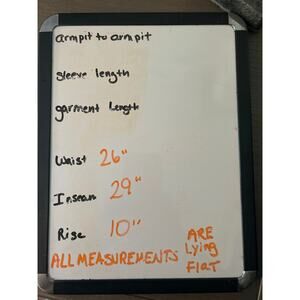 armpit to armpit
sleeve length
garment length
Waist 26"
Inseam 29"
Rise 10"
ALL MEASUREMENTS
ARE
Lying
Flat